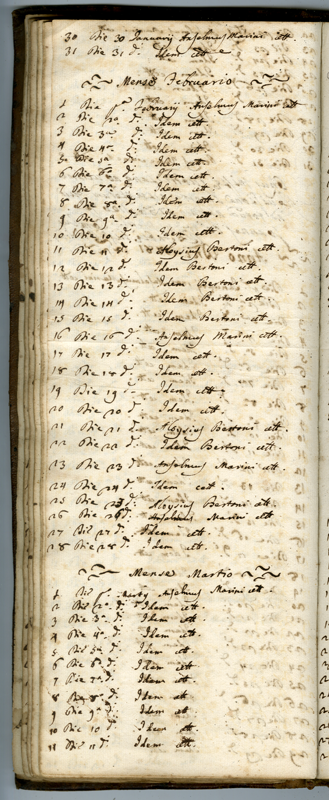 30 Die 30 Januarij Anselmus Marini ctt.
31 Die 31 d.º Idem ctt
Mense Februario
1 Die 1ª Februarij Anselmus Marini ctt
2 Die 2ª d.º Idem ctt
3 Die 3ª d.º Idem ctt.
4 Die 4ª d.º Idem ctt.
5 Die 5ª d.º Idem ctt.
6 Die 6ª d.º Idem ctt.
7 Die 7ª d.º Idem ctt.
8 Die 8ª d.º Idem ctt.
9 Die 9ª d.º Idem ctt.
10 Die 10 d.º Idem ctt.
11 Die 11 d.º Aloysius Bertoni ctt.
12 Die 12 d.º Idem Bertoni ctt.
13 Die 13 d.º Idem Bertoni ctt.
14 Die 14 d.º Idem Bertoni ctt.
15 Die 15 d.º Idem Bertoni ctt.
16 Die 16 d.º Anselmus Marini ctt.
17 Die 17 d.º Idem ctt.
18 Die 18 d.º Idem ctt.
19 Die 19 Idem ctt
20 Die 20 d.º Idem ctt.
21 Die 21 d.º Aloysius Bertoni ctt.
22 Die 22 d.º Idem Bertoni ctt.
23 Die 23 d.º Anselmus Marini ctt.
24 Die 24 d.º Idem ctt.
25 Die d.º Aloysius Bertoni ctt.
26 Die 26 d.º Anselmus Marini ctt
27 Die 27 d.º Idem ctt.
28 Die 28 d.º Idem ctt.
Mense Martio
1 Die Martij Anselmus Marini ctt
2 Die 2ª d.º Idem ctt
3 Die 3ª d.º Idem ctt.
4 Die 4ª d.º Idem ctt.
5 Die 5ª d.º Idem ctt.
6 Die 6ª d.º Idem ctt.
7 Die 7ª d.º Idem ctt.
8 Die 8ª d.º Idem ctt
9 Die 9ª d.º Idem ctt.
10 Die 10 d.º Idem ctt.
11 Die 11 d.º Idem ctt.